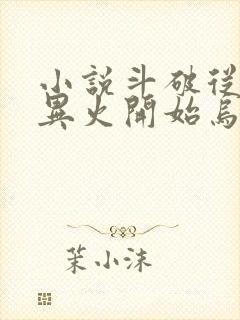 小說斗破從
異火開始烏
茉小沫